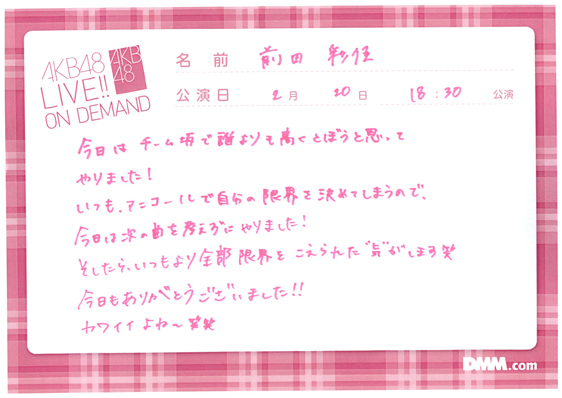 AKB48
LIVE!!
ON DEMAND
AKB
48
名前 前田 彩佳
公演日 2月 20日 18:30 公演
今日は チーム坂で誰よりも高くとぼうと思って
やりました!
いつも、アンコールで自分の限界を決めてしまうので、
今日は次の曲を考えずにやりました!
そしたら、いつもより全部限界をこえられた気がします笑
今日もありがとうございました!!
カワイイよね〜笑笑
DMM.com